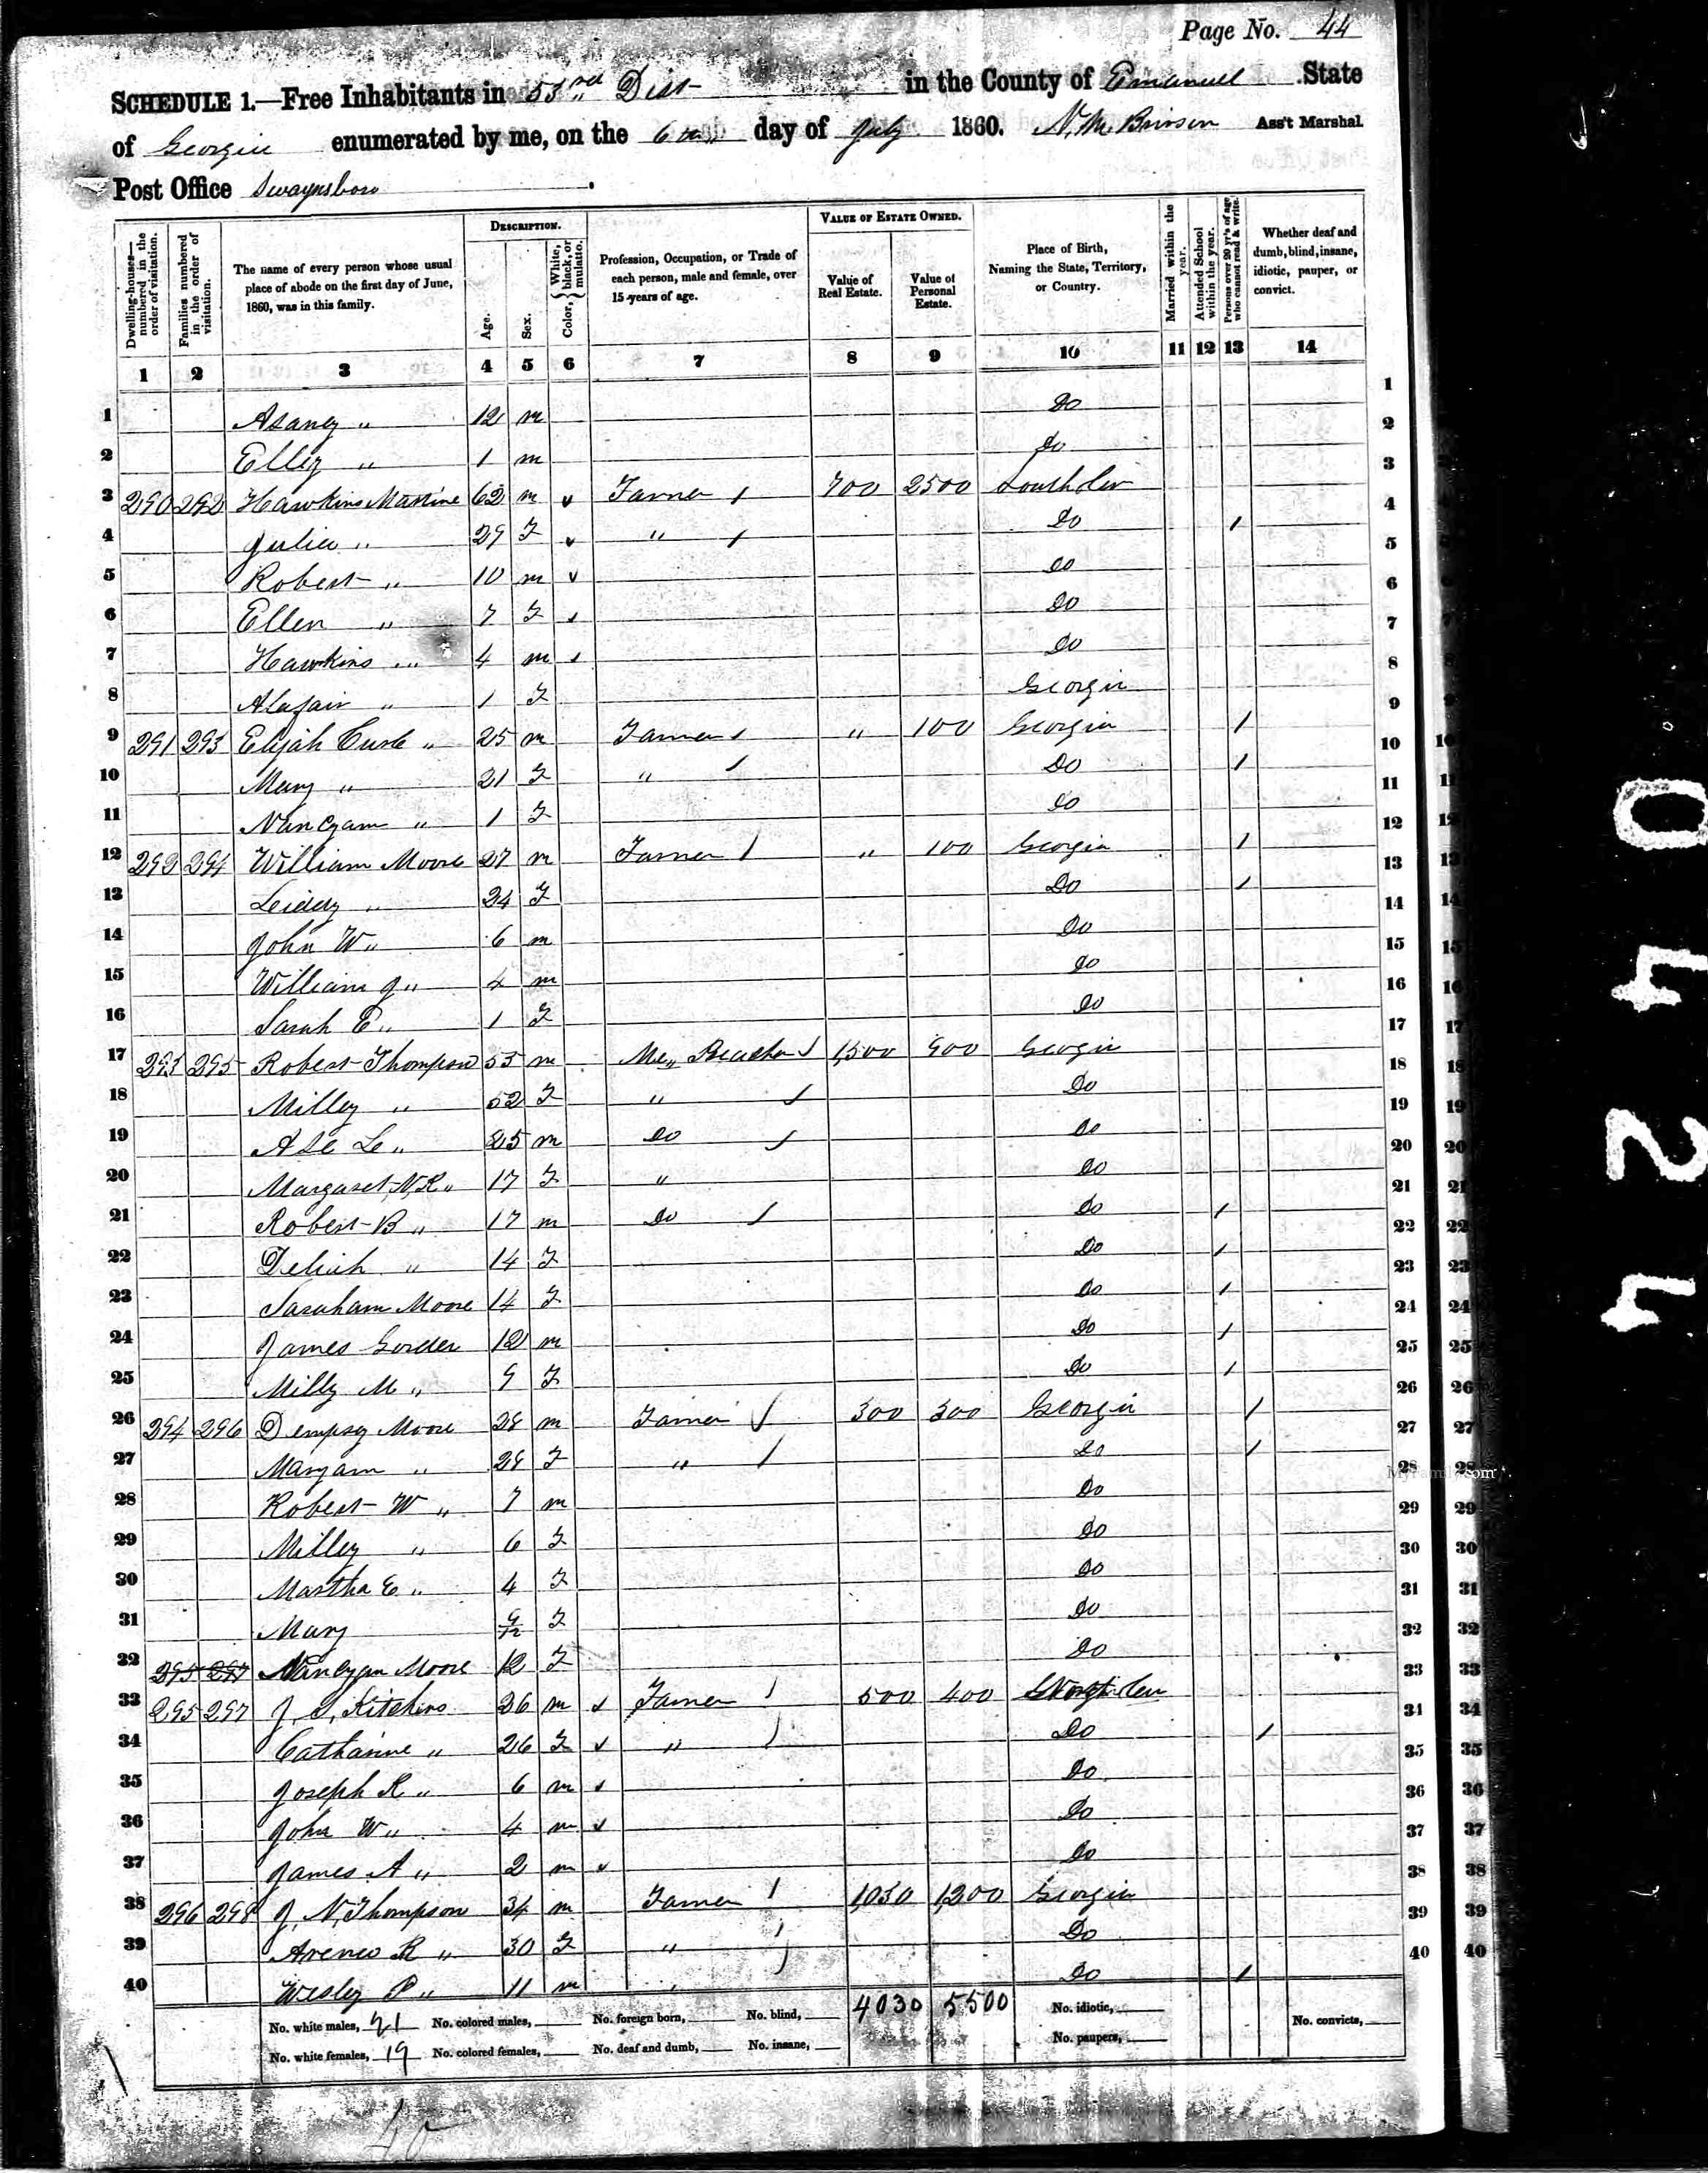 Page No. 44
SCHEDULE 1.—Free Inhabitants in 53rd Dist in the County of Emanuel State
of Georgia enumerated by me, on the 6th day of July 1860. N. M. Brinson Ass't Marshal
Post Office Swaynsboro
Dwelling-houses—numbered in the order of visitation.
Families numbered in the order of visitation.
The name of every person whose usual place of abode on the first day of June, 1860, was in this family.
DESCRIPTION.
Age.
Sex.
Color, { White, black, or mulatto.
Profession, Occupation, or Trade of each person, male and female, over 15 years of age.
VALUE OF ESTATE OWNED.
Value of Real Estate.
Value of Personal Estate.
Place of Birth, Naming the State, Territory, or Country.
Married within the year.
Attended School within the year.
Persons over 20 yr's of age who cannot read & write.
Whether deaf and dumb, blind, insane, idiotic, pauper, or convict.
1 2 3 4 5 6 7 8 9 10 11 12 13 14
1 Asaney " 12 m Do 1
2 Elley " 1 m Do 2
3 290 292 Hawkins Martine 62 m Farmer 700 2500 South Car 3
4 Julia " 29 F " Do / 4
5 Robert " 10 m Do 5
6 Ellen " 7 F Do 6
7 Hawkins " 4 m Do 7
8 Alafair " 1 F Georgia 8
9 291 293 Elijah Curl " 25 m Farmer " 100 Georgia / 9
10 Mary " 21 F " Do / 10
11 Nancyam " 1 F Do 11
12 292 294 William Moore 27 m Farmer " 100 Georgia / 12
13 " 24 F Do / 13
14 John W " 6 m Do 14
15 William J " 4 m Do 15
16 Sarah E " 1 F Do 16
17 293 295 Robert Thompson 55 m Me,, Preacher 1,500 900 Georgia 17
18 Milley " 52 F " Do 18
19 Ase L " 25 m Do Do 19
20 Margaret N. R " 17 F " Do 20
21 Robert B " 17 m Do Do / 21
22 Deliah " 14 F Do / 22
23 Saraham Moore 14 F Do / 23
24 James Gorden 12 m Do / 24
25 Milly M " 9 F Do / 25
26 294 296 Dempsey Moore 28 m Farmer 300 300 Georgia / 26
27 Maryam " 28 F " Do / 27
28 Robert W " 7 m Do 28
29 Milley " 6 F Do 29
30 Martha E " 4 F Do 30
31 Mary 9/12 F Do 31
32 295 297 Nancyam Moore 12 F Do 32
33 295 297 J. S. Kitchens 26 m Farmer 500 400 North Car 33
34 Catharine " 26 F " Do / 34
35 Joseph R " 6 m Do 35
36 John W " 4 m Do 36
37 James A " 2 m Do 37
38 296 298 J. N. Thompson 34 m Farmer 1,030 1,200 Georgia 38
39 R " 30 F " Do 39
40 Wesley P " 11 m " Do / 40
No. white males, 21 No. colored males, No. foreign born, No. blind, 4030 5500 No. idiotic, No. convicts,
No. white females, 19 No. colored females, No. deaf and dumb, No. insane, No. paupers,
40
MyFamily.com